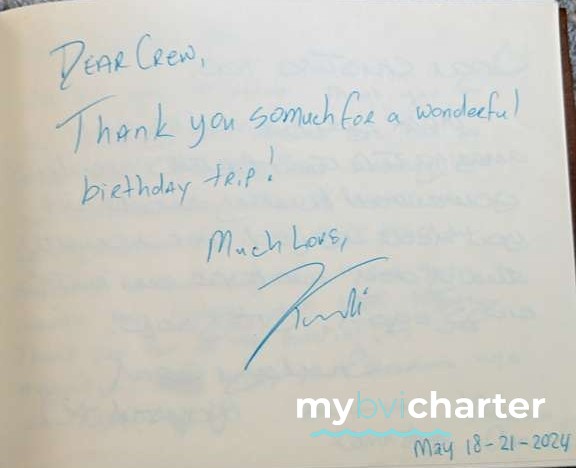 Dear Crew,
Thank you so much for a wonderful
birthday trip!
Much Love,
mybvicharter
May 18-21-2024